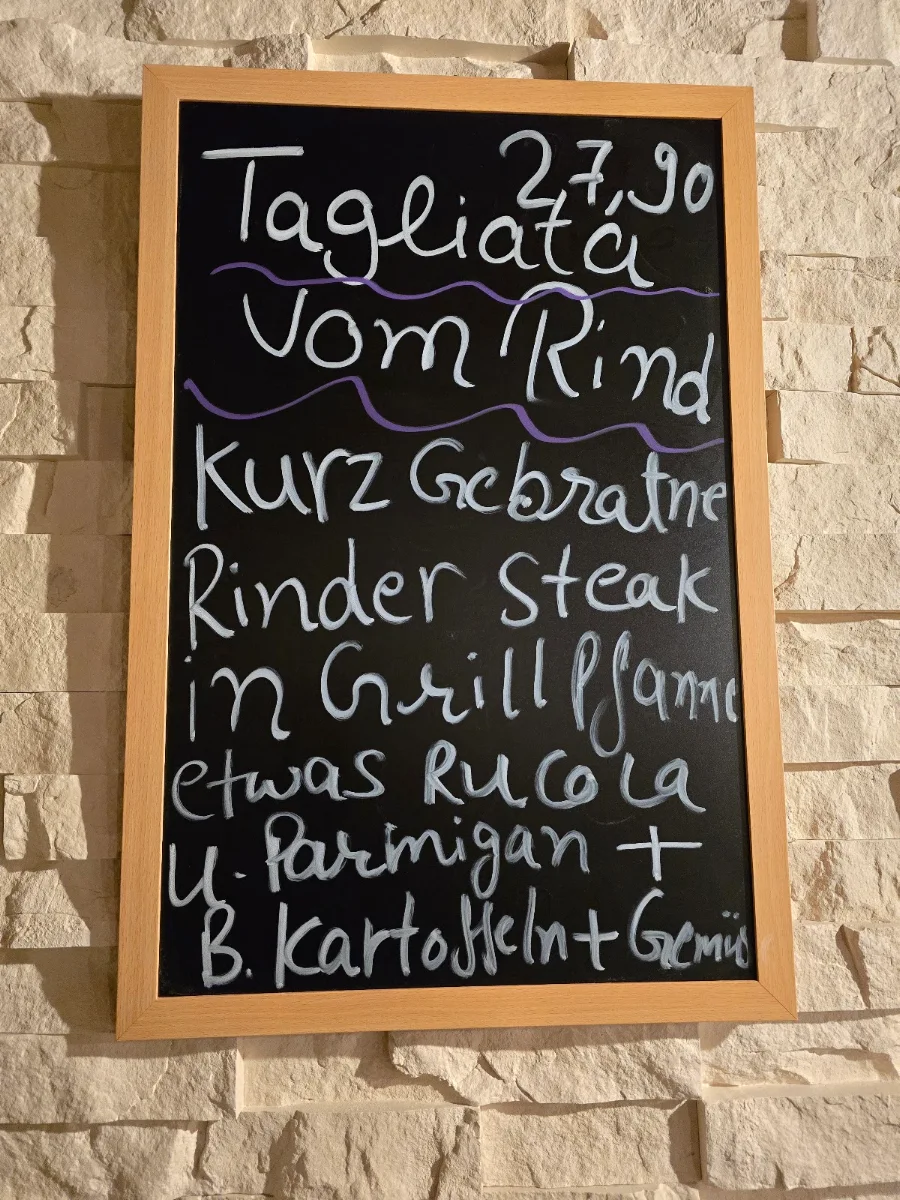 27,90
Tagliata
Vom Rind
Kurz Gebratne
Rinder Steak
in Grill Pfanne
etwas Rucola
u. Parmigan +
B. Kartoffeln + Gemüs